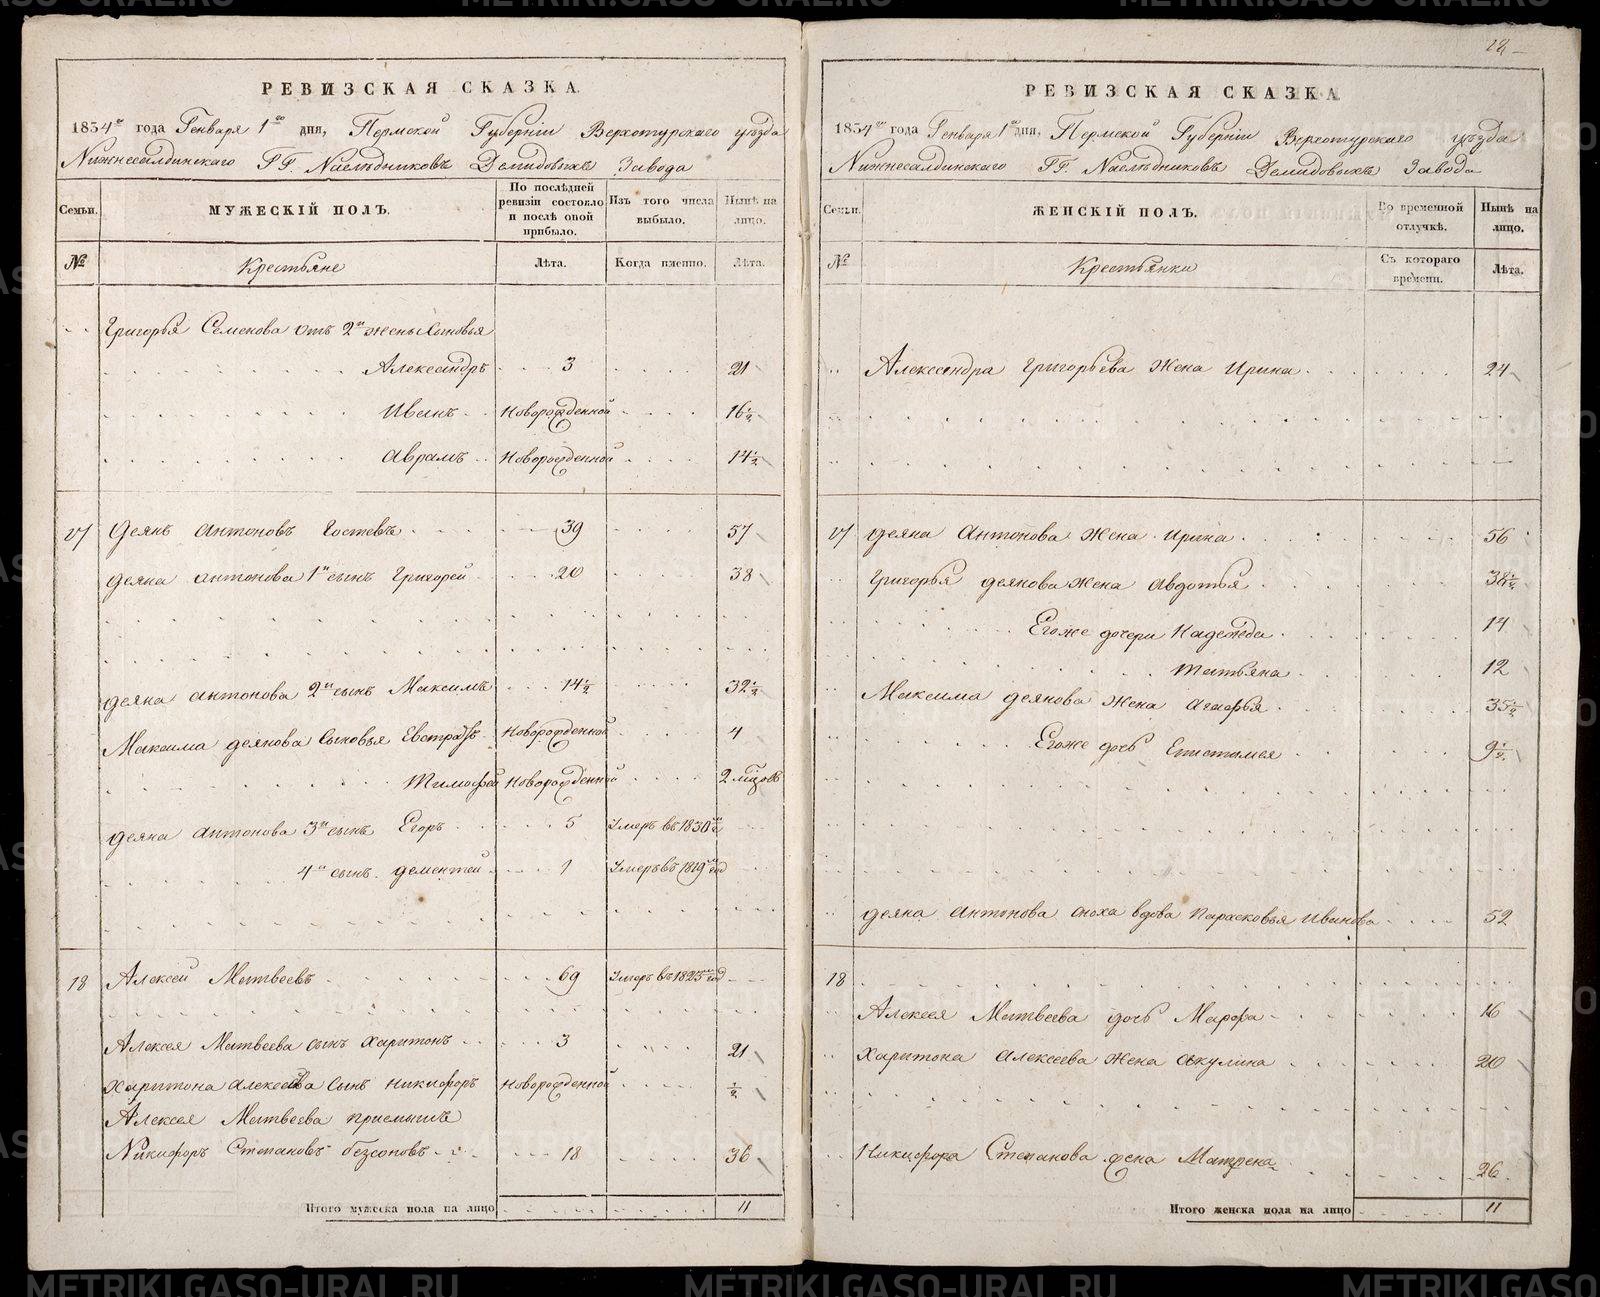 РЕВИЗСКАЯ СКАЗКА.
1834го года Генваря 1го дня, Пермской Губернiи Верхотурскаго уѣзда
Нижнесалдинскаго ГГ. Наслѣдниковъ Демидовыхъ Завода
Семьи. МУЖЕСКIЙ ПОЛЪ. По послѣдней ревизiи состояло и послѣ оной прибыло. Изъ того числа выбыло. Нынѣ на лицо.
№ Крестьяне Лѣта. Когда именно. Лѣта.
Григорья Семенова отъ 2й жены сыновья
Александръ 3 21
Иванъ Новорожденной 16½
Аврамъ Новорожденной 14½
17 Деянъ Антоновъ Гостевъ 39 57
Деяна Антонова 1й сынъ Григорей 20 38
Деяна Антонова 2й сынъ Максимъ 14½ 32½
Максима Деянова сыновья Евстрафъ Новорожденной 4
Тимофей Новорожденной 2 мцовъ
Деяна Антонова 3й сынъ Егоръ 5 Умеръ въ 1830мъ
4й сынъ Дементей 1 Умеръ въ 1819мъ год
18 Алексей Матвеевъ 69 Умеръ въ 1825мъ год
Алексея Матвеева сынъ Харитонъ 3 21
Харитона Алексеева сынъ Никифоръ Новорожденной ½
Алексея Матвеева приемышъ
Никифоръ Степановъ Безсоновъ 18 36
Итого мужеска пола на лицо 11
РЕВИЗСКАЯ СКАЗКА
1834го года Генваря 1го дня, Пермской Губернiи Верхотурскаго уѣзда
Нижнесалдинскаго ГГ. Наслѣдниковъ Демидовыхъ Завода
Семьи. ЖЕНСКIЙ ПОЛЪ. Во временной отлучкѣ. Нынѣ на лицо.
№ Крестьянки Съ котораго времени. Лѣта.
Александра Григорьева жена Ирина 24
17 Деяна Антонова жена Ирина 56
Григорья Деянова жена Авдотья 38½
Егоже дочери Надежда 14
Татьяна 12
Максима Деянова жена Агафья 35½
Егоже дочь Епистамея 9½
Деяна Антонова сноха вдова Парасковья Иванова 52
18
Алексея Матвеева дочь Марфа 16
Харитона Алексеева жена Акулина 20
Никифора Степанова жена Матрена 26
Итого женска пола на лицо 11
METRIKI.GASO-URAL.RU